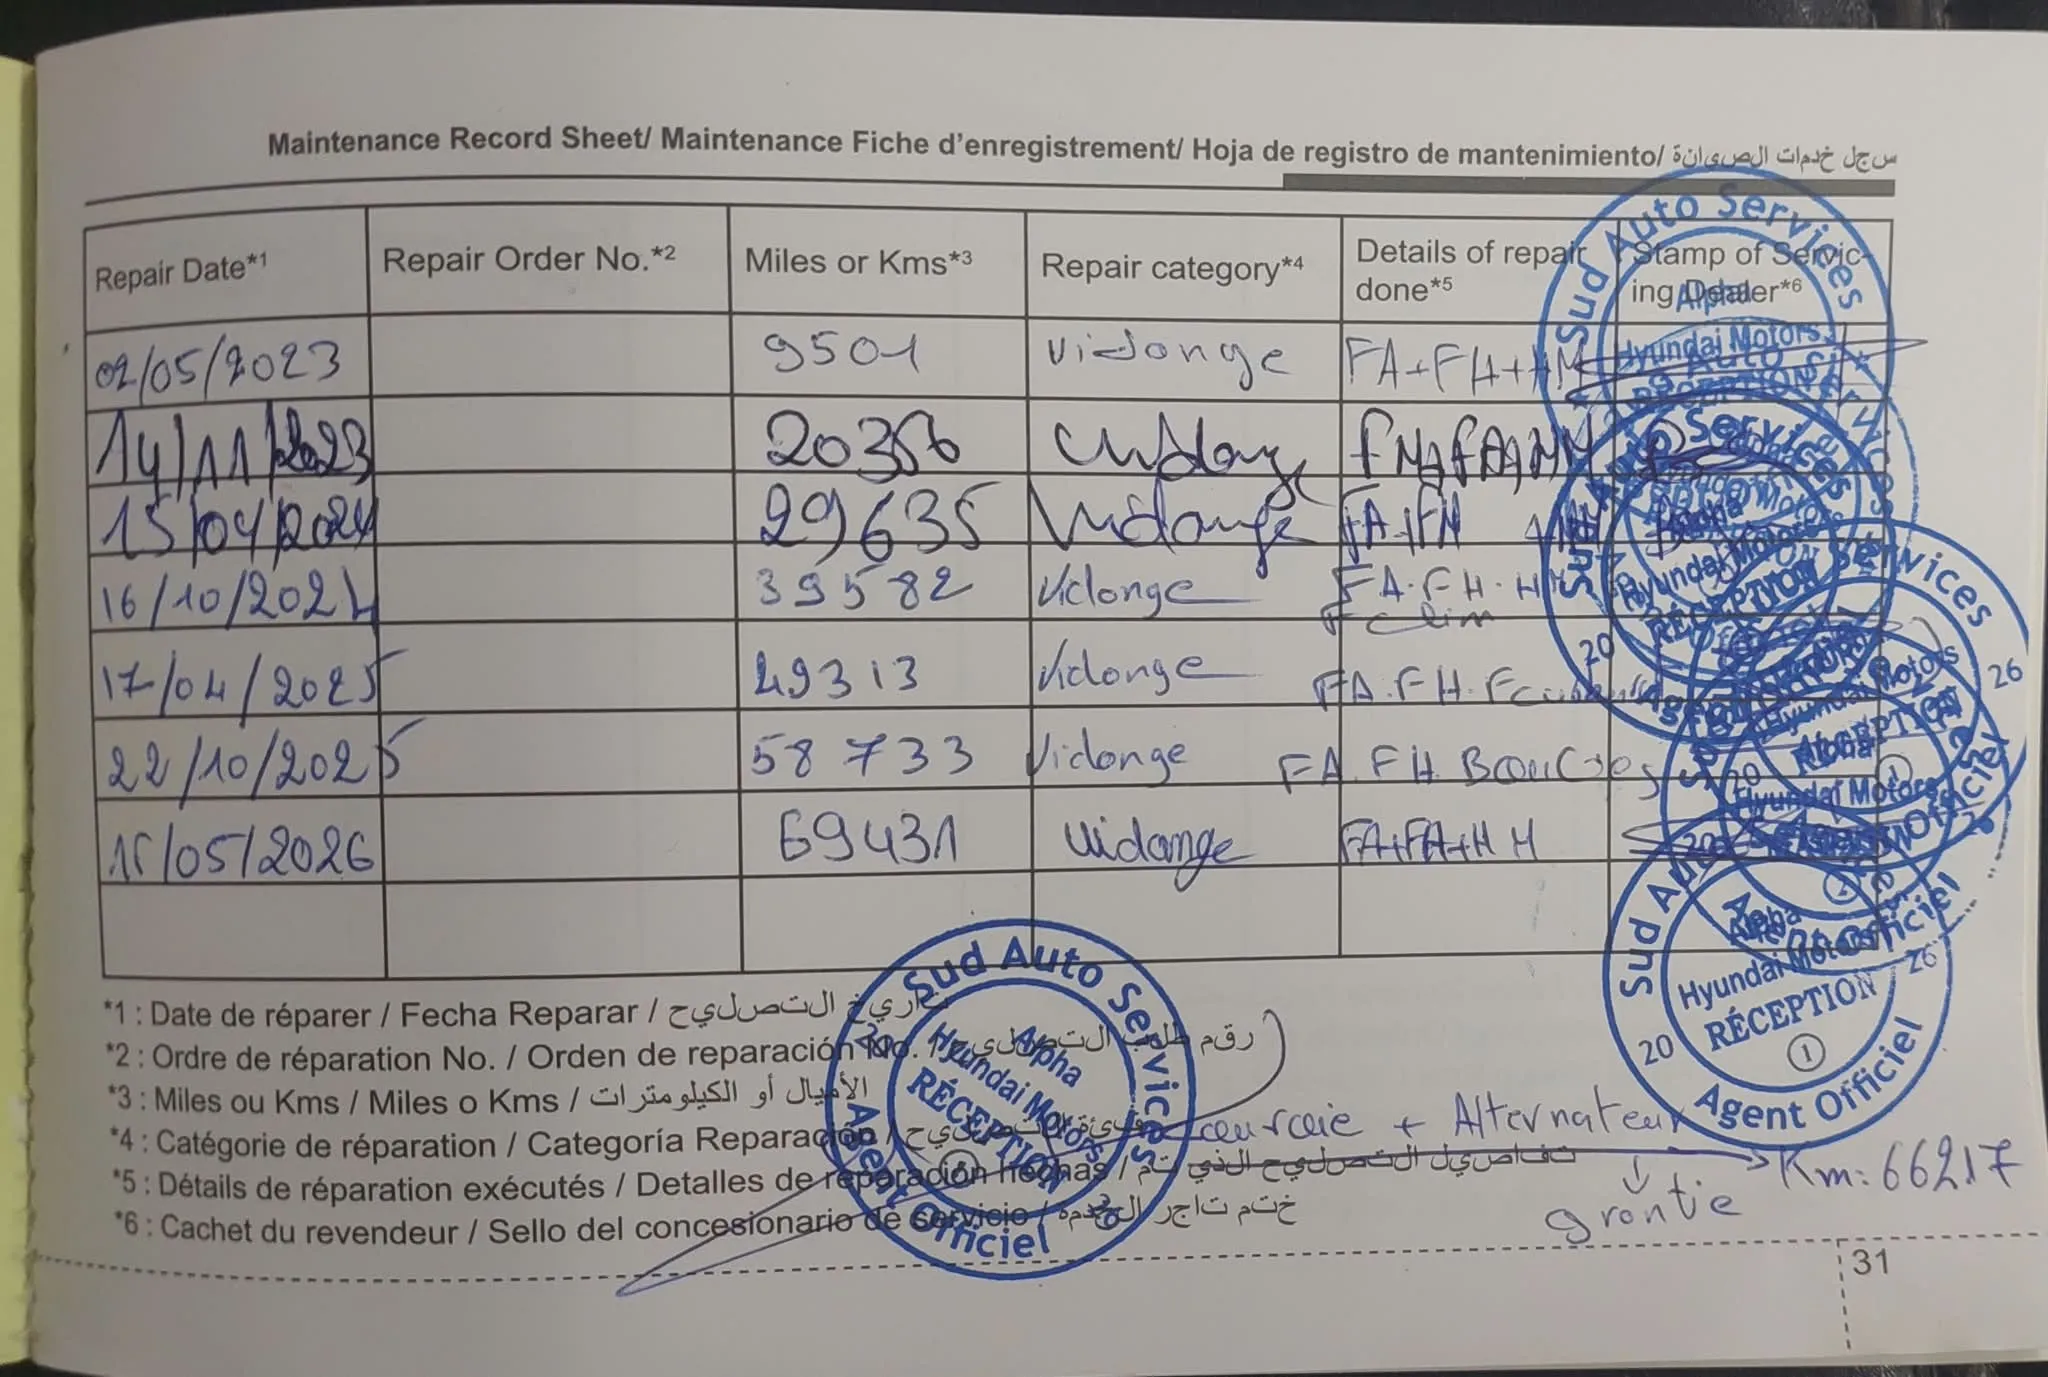 Maintenance Record Sheet/ Maintenance Fiche d'enregistrement/ Hoja de registro de mantenimiento/ سجل خدمات الصيانة
Repair Date*1 Repair Order No.*2 Miles or Kms*3 Repair category*4 Details of repair done*5 Stamp of Servicing Dealer*6
02/05/2023 9501 vidange FA+FH+HM
14/11/2023 20356 vidange
15/04/2024 29635 Vidange FA+FH
16/10/2024 39582 Vidange FA.FH.HM
F clim
17/04/2025 49313 Vidange FA.FH.F
22/10/2025 58733 Vidange FA.FH. Bougies
15/05/2026 69431 vidange FA+FA+HM
*1 : Date de réparer / Fecha Reparar / تاريخ التصليح
*2 : Ordre de réparation No. / Orden de reparación No. / رقم طلب التصليح
*3 : Miles ou Kms / Miles o Kms / الأميال أو الكيلومترات
*4 : Catégorie de réparation / Categoría Reparación / فئة التصليح
*5 : Détails de réparation exécutés / Detalles de reparación hechas / تفاصيل التصليح الذي تم
*6 : Cachet du revendeur / Sello del concesionario de servicio / ختم تاجر الخدمة
courroie + Alternateur
Km: 66217
grontie
Sud Auto Services
Alpha
Hyundai Motors
RÉCEPTION
1
Agent Officiel
20 26
Sud Auto Services
Alpha
Hyundai Motors
RÉCEPTION
Agent Officiel
31